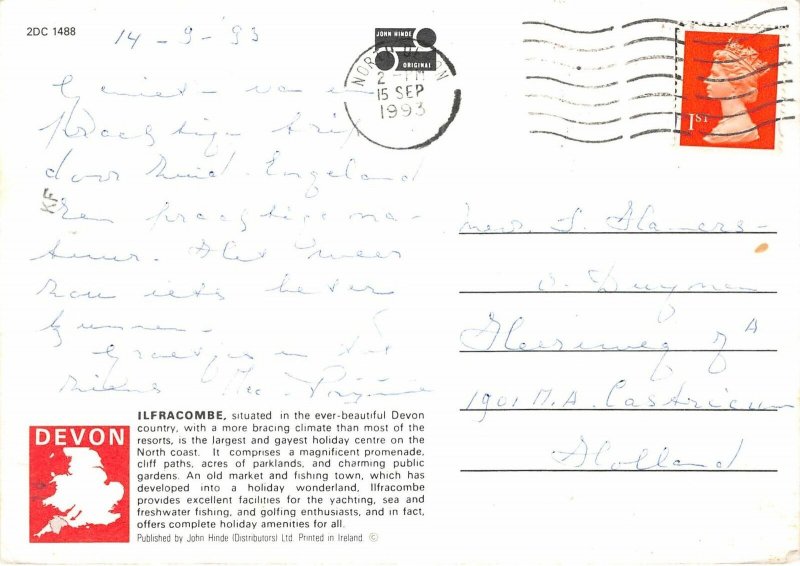 2DC 1488
14-9-'93
JOHN HINDE
ORIGINAL
NORTH DEVON
2 - PM
15 SEP
1993
1ST
Geniet van een
prachtige trip
door Zuid-Engeland
Een prachtige na-
tuur. Het weer
zou iets beter
kunnen.
Groetjes en tot
KF
Mevr.
v. Duynen
A
1901 M.A. Castricum
Holland
DEVON
ILFRACOMBE, situated in the ever-beautiful Devon
country, with a more bracing climate than most of the
resorts, is the largest and gayest holiday centre on the
North coast. It comprises a magnificent promenade,
cliff paths, acres of parklands, and charming public
gardens. An old market and fishing town, which has
developed into a holiday wonderland, Ilfracombe
provides excellent facilities for the yachting, sea and
freshwater fishing, and golfing enthusiasts, and in fact,
offers complete holiday amenities for all.
Published by John Hinde (Distributors) Ltd. Printed in Ireland. ©